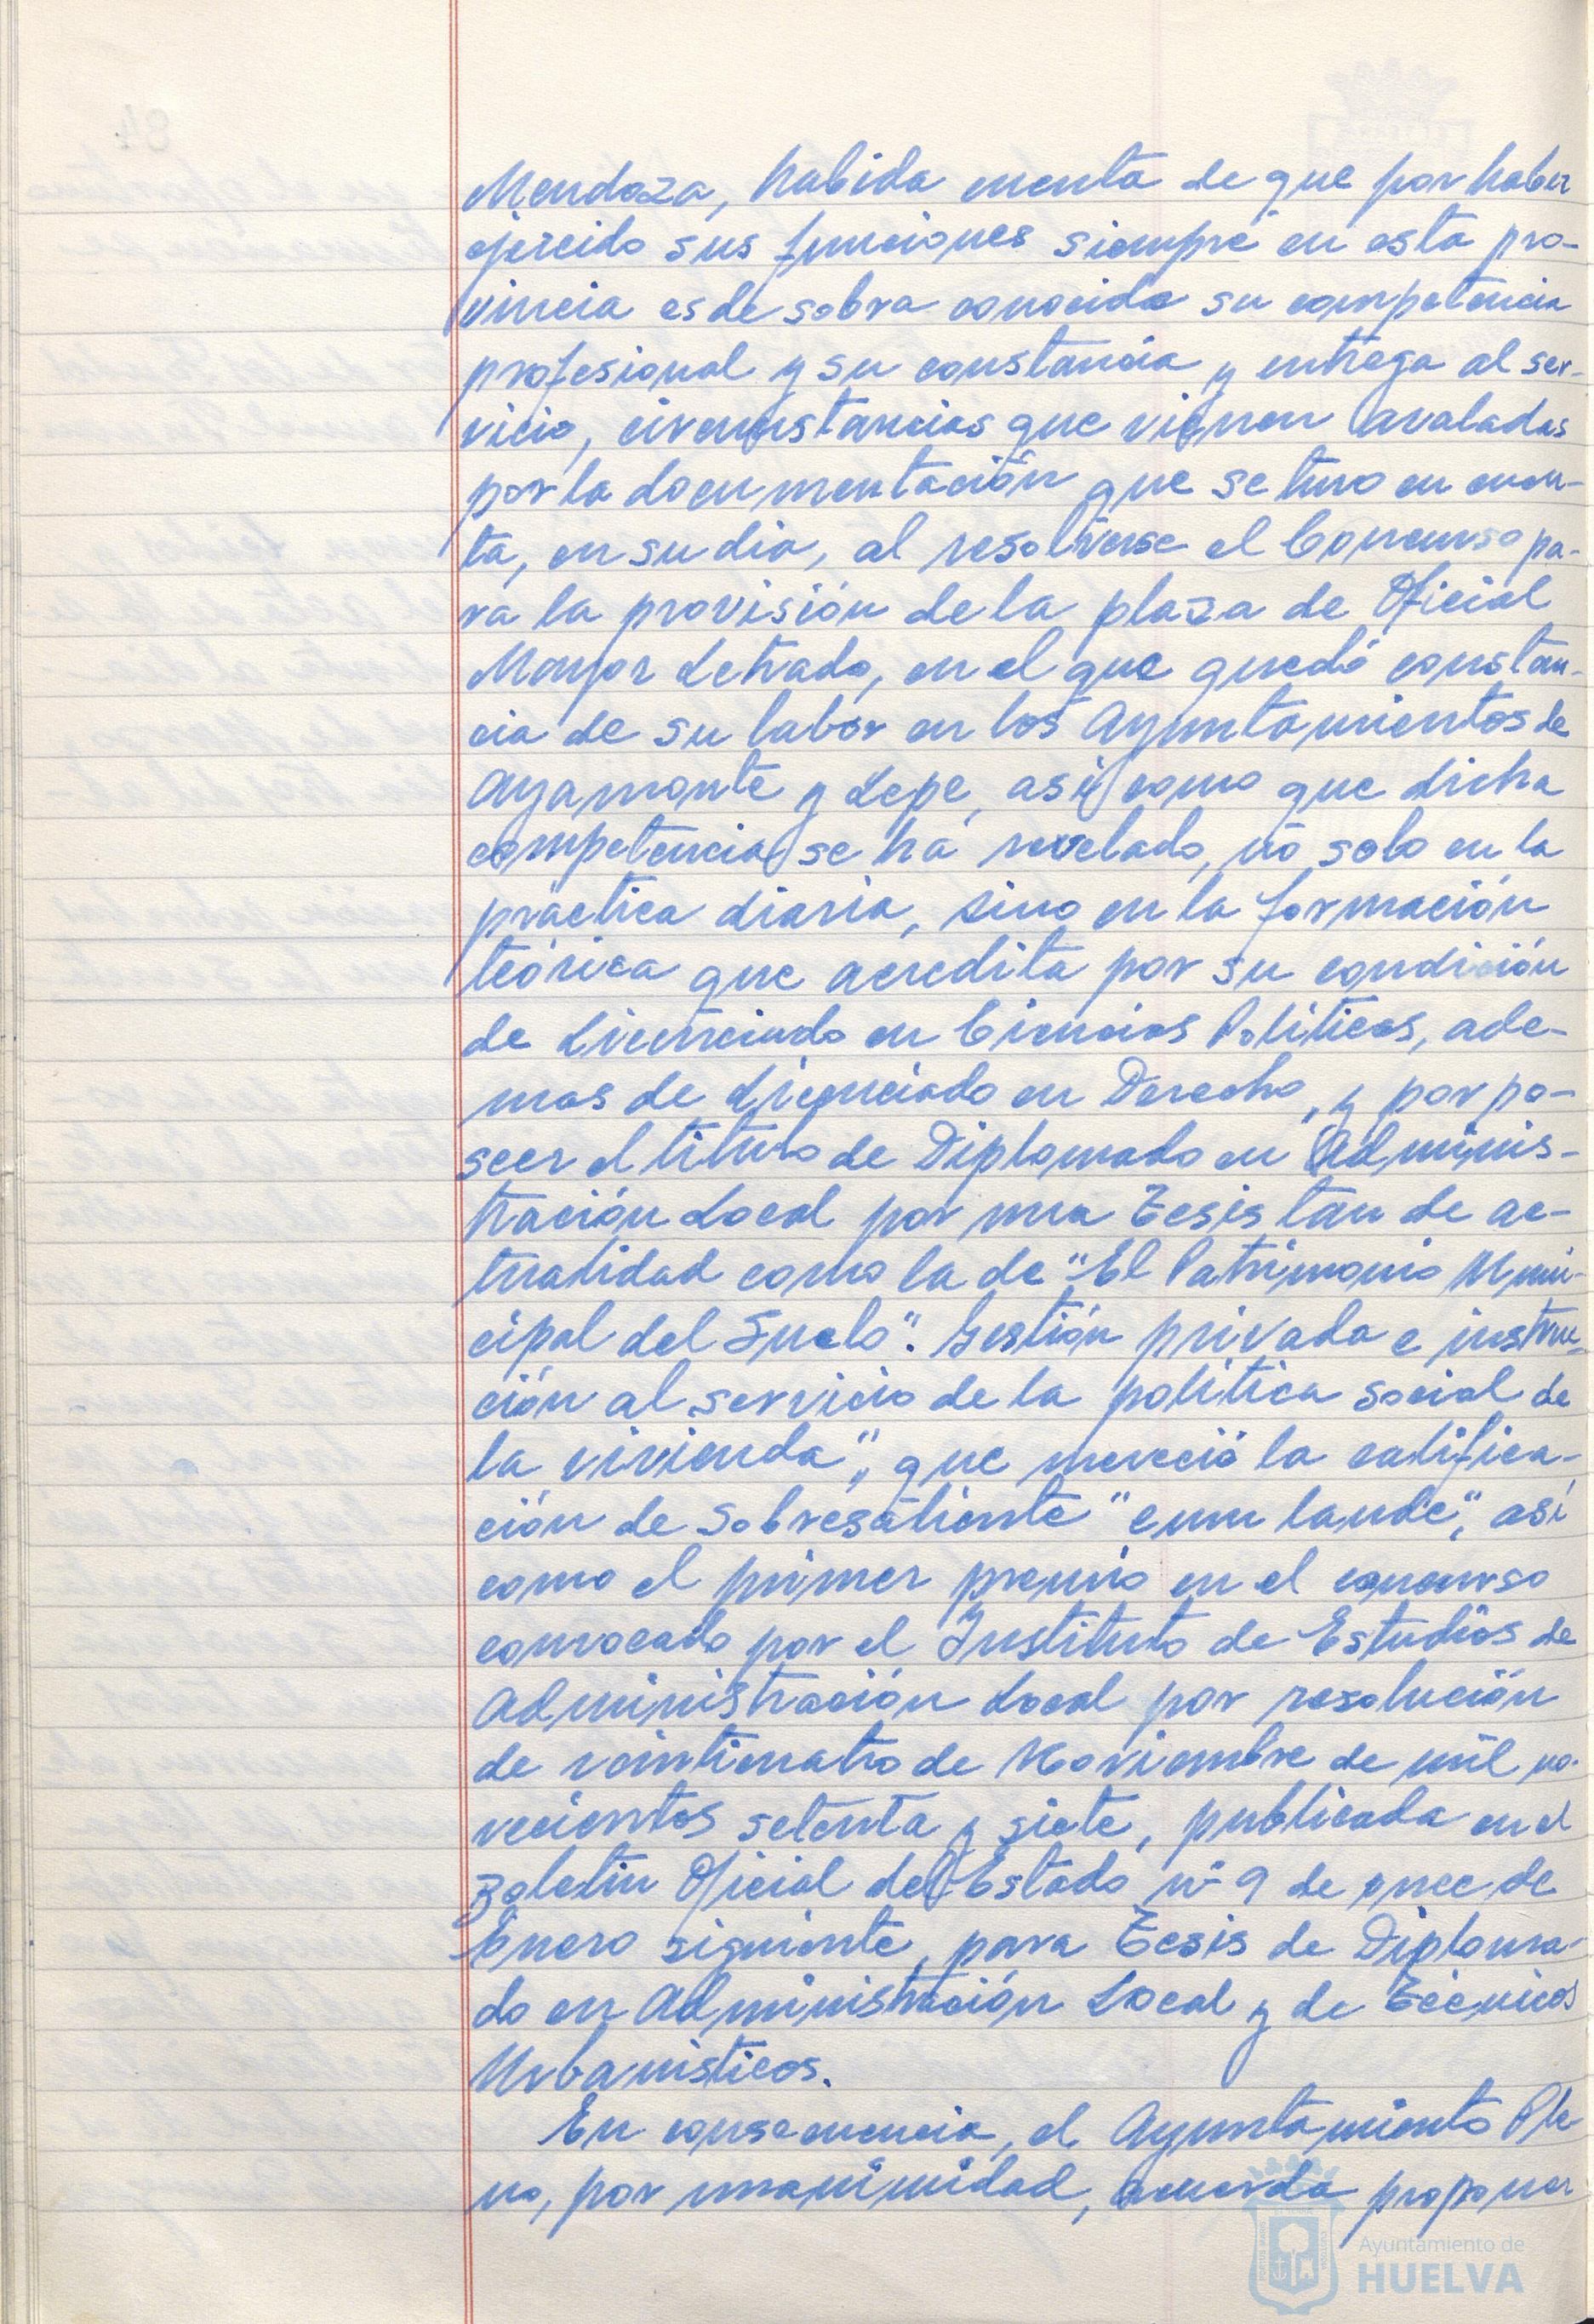 Mendoza, habida cuenta de que por haber
ejercido sus funciones siempre en esta pro-
vincia es de sobra conocida su competencia
profesional y su constancia y entrega al ser-
vicio, circunstancias que vienen avaladas
por la documentación que se tuvo en cuen-
ta, en su dia, al resolverse el Concurso pa-
ra la provisión de la plaza de Oficial
Mayor Letrado, en el que quedó constan-
cia de su labor en los Ayuntamientos de
Ayamonte y Lepe, así como que dicha
competencia se há revelado, nó solo en la
práctica diaria, sino en la formación
teórica que acredita por su condición
de Licenciado en Ciencias Políticas, ade-
mas de Licenciado en Derecho, y por po-
seer el título de Diplomado en Adminis-
tración Local por una Tesis tan de ac-
tualidad como la de "El Patrimonio Muni-
cipal del Suelo". Gestión privada e instru-
ción al servicio de la política social de
la vivienda", que mereció la califica-
ción de Sobresaliente "cum laude", así
como el primer premio en el concurso
convocado por el Instituto de Estudios de
Administración Local por resolución
de veinticuatro de Noviembre de mil no-
vecientos setenta y siete, publicada en el
Boletin Oficial del Estado nº 9 de once de
Enero siguiente, para Tesis de Diploma-
do en Administración Local y de Técnicos
Urbanísticos.
En consecuencia, el Ayuntamiento Ple-
no, por unanimidad, acuerda proponer
Ayuntamiento de
HUELVA